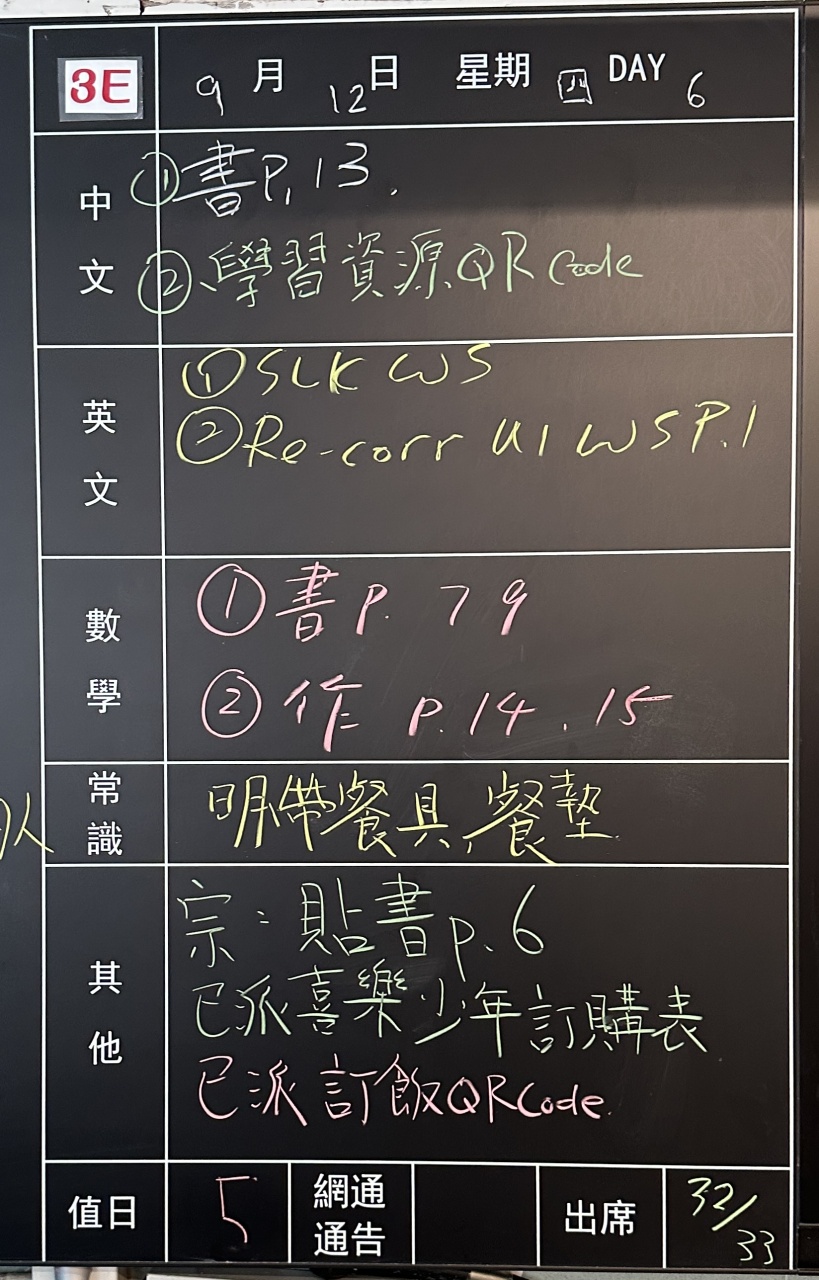 3E 9月12日 星期四 DAY 6
中文
①書P.13.
②、學習資源QR Code
英文
①SLK WS
②Re-corr U1 WS P.1
數學
①書P. 79
②作 P.14.15
常識
明帶餐具,餐墊
其他
宗：貼書p.6
已派喜樂少年訂購表
已派訂飯QR Code
值日 5 網通通告 出席 32/33